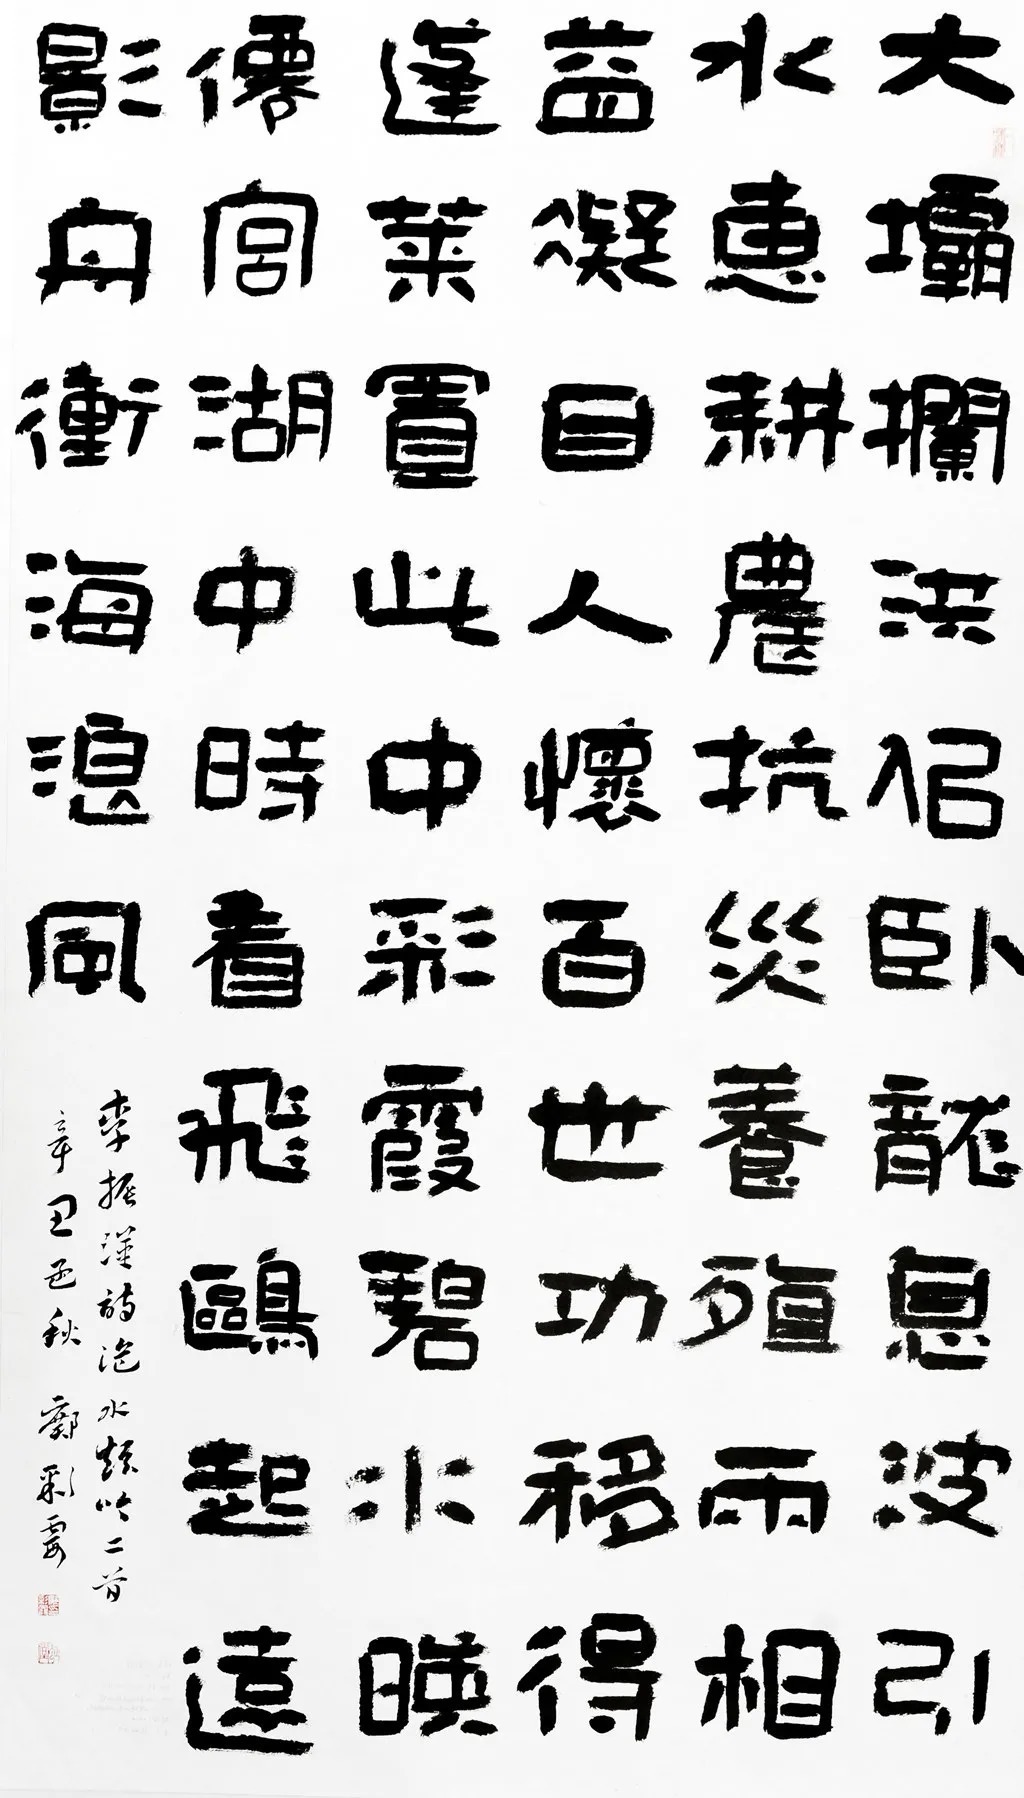 大壩攔洪佀臥龍息波引
水惠耕農抗災養殖兩相
益凝目人懷百世功移得
蓬萊置此中彩霞碧水暎
僊宮湖中時看飛鷗起遠
影舟衝海浪風
李振漢詩水頌吟二首
辛丑孟秋 彩霞